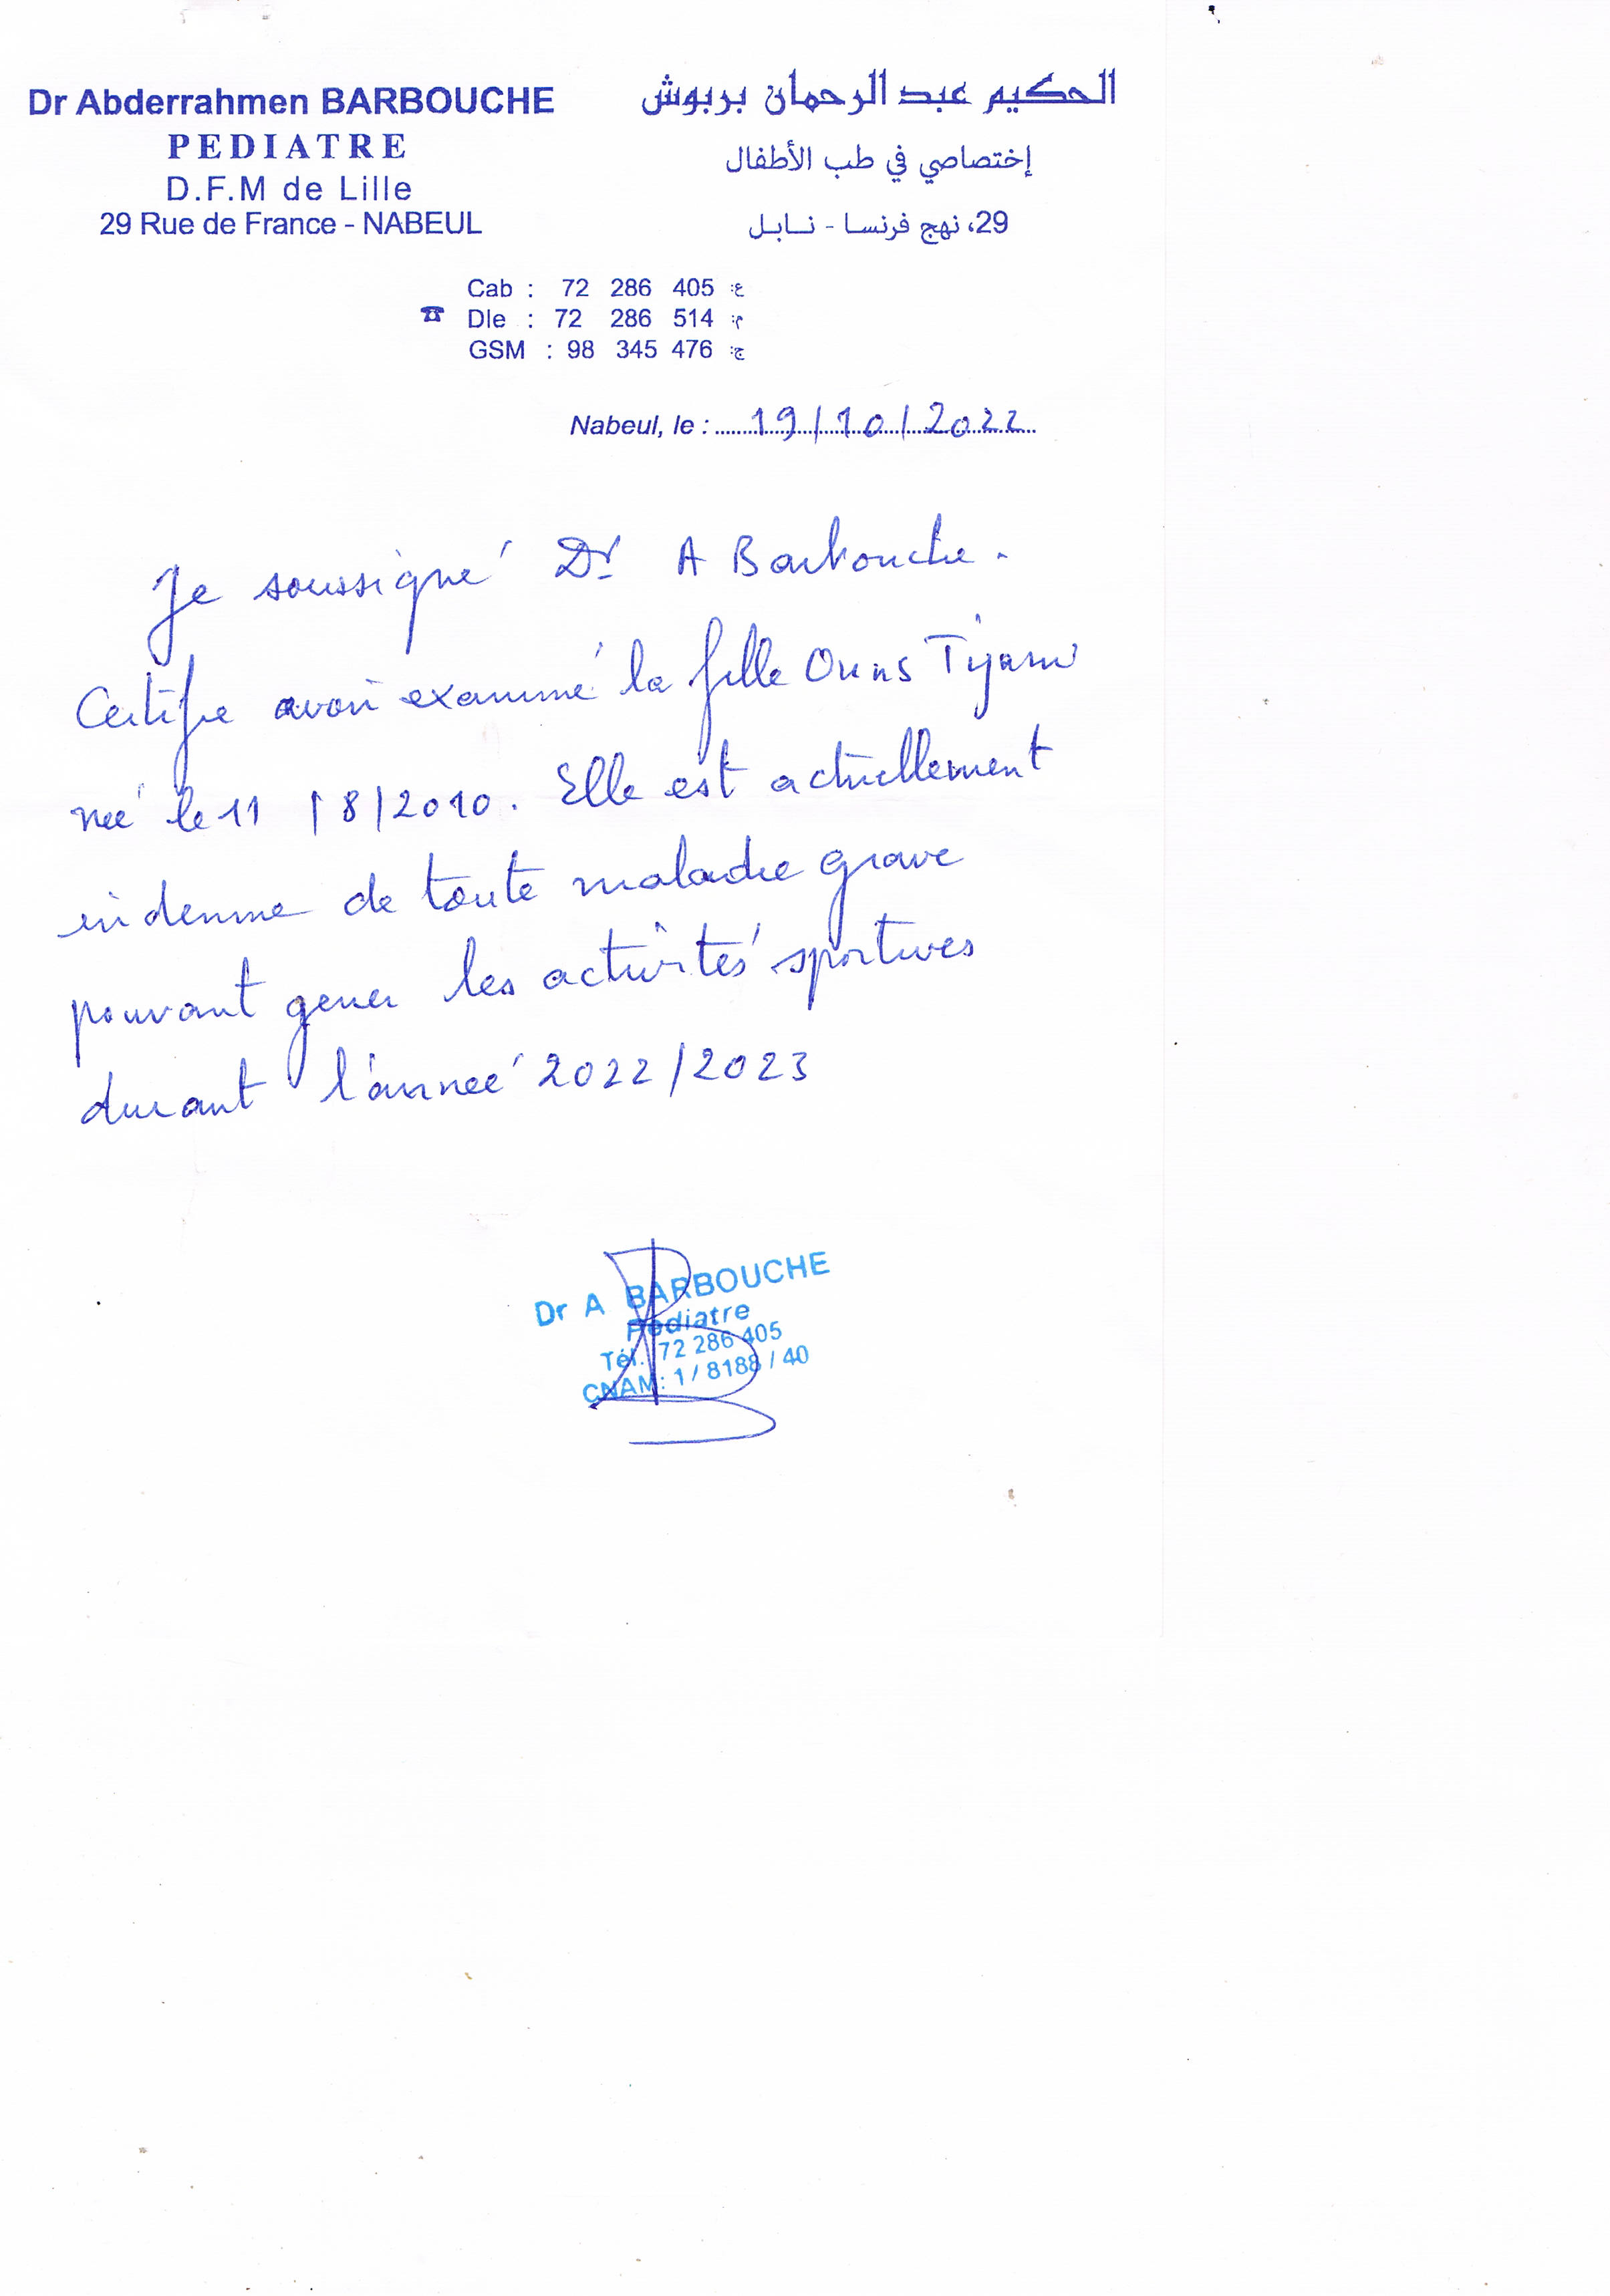 Dr Abderrahmen BARBOUCHE
PEDIATRE
D.F.M de Lille
29 Rue de France - NABEUL
الحكيم عبد الرحمان بربوش
إختصاصي في طب الأطفال
29، نهج فرنسا - نابل
Cab : 72 286 405 ع:
☎ Dle : 72 286 514 م:
GSM : 98 345 476 ج:
Nabeul, le : 19/10/2022
Je soussigné Dr A Barbouche.
Certifie avoir examiné la fille Ouns Tijani
née le 11/8/2010. Elle est actuellement
indemne de toute maladie grave
pouvant gener les activités sportives
durant l'année 2022/2023
Dr A BARBOUCHE
Pédiatre
Tél. 72 286 405
CNAM: 1/8188/40